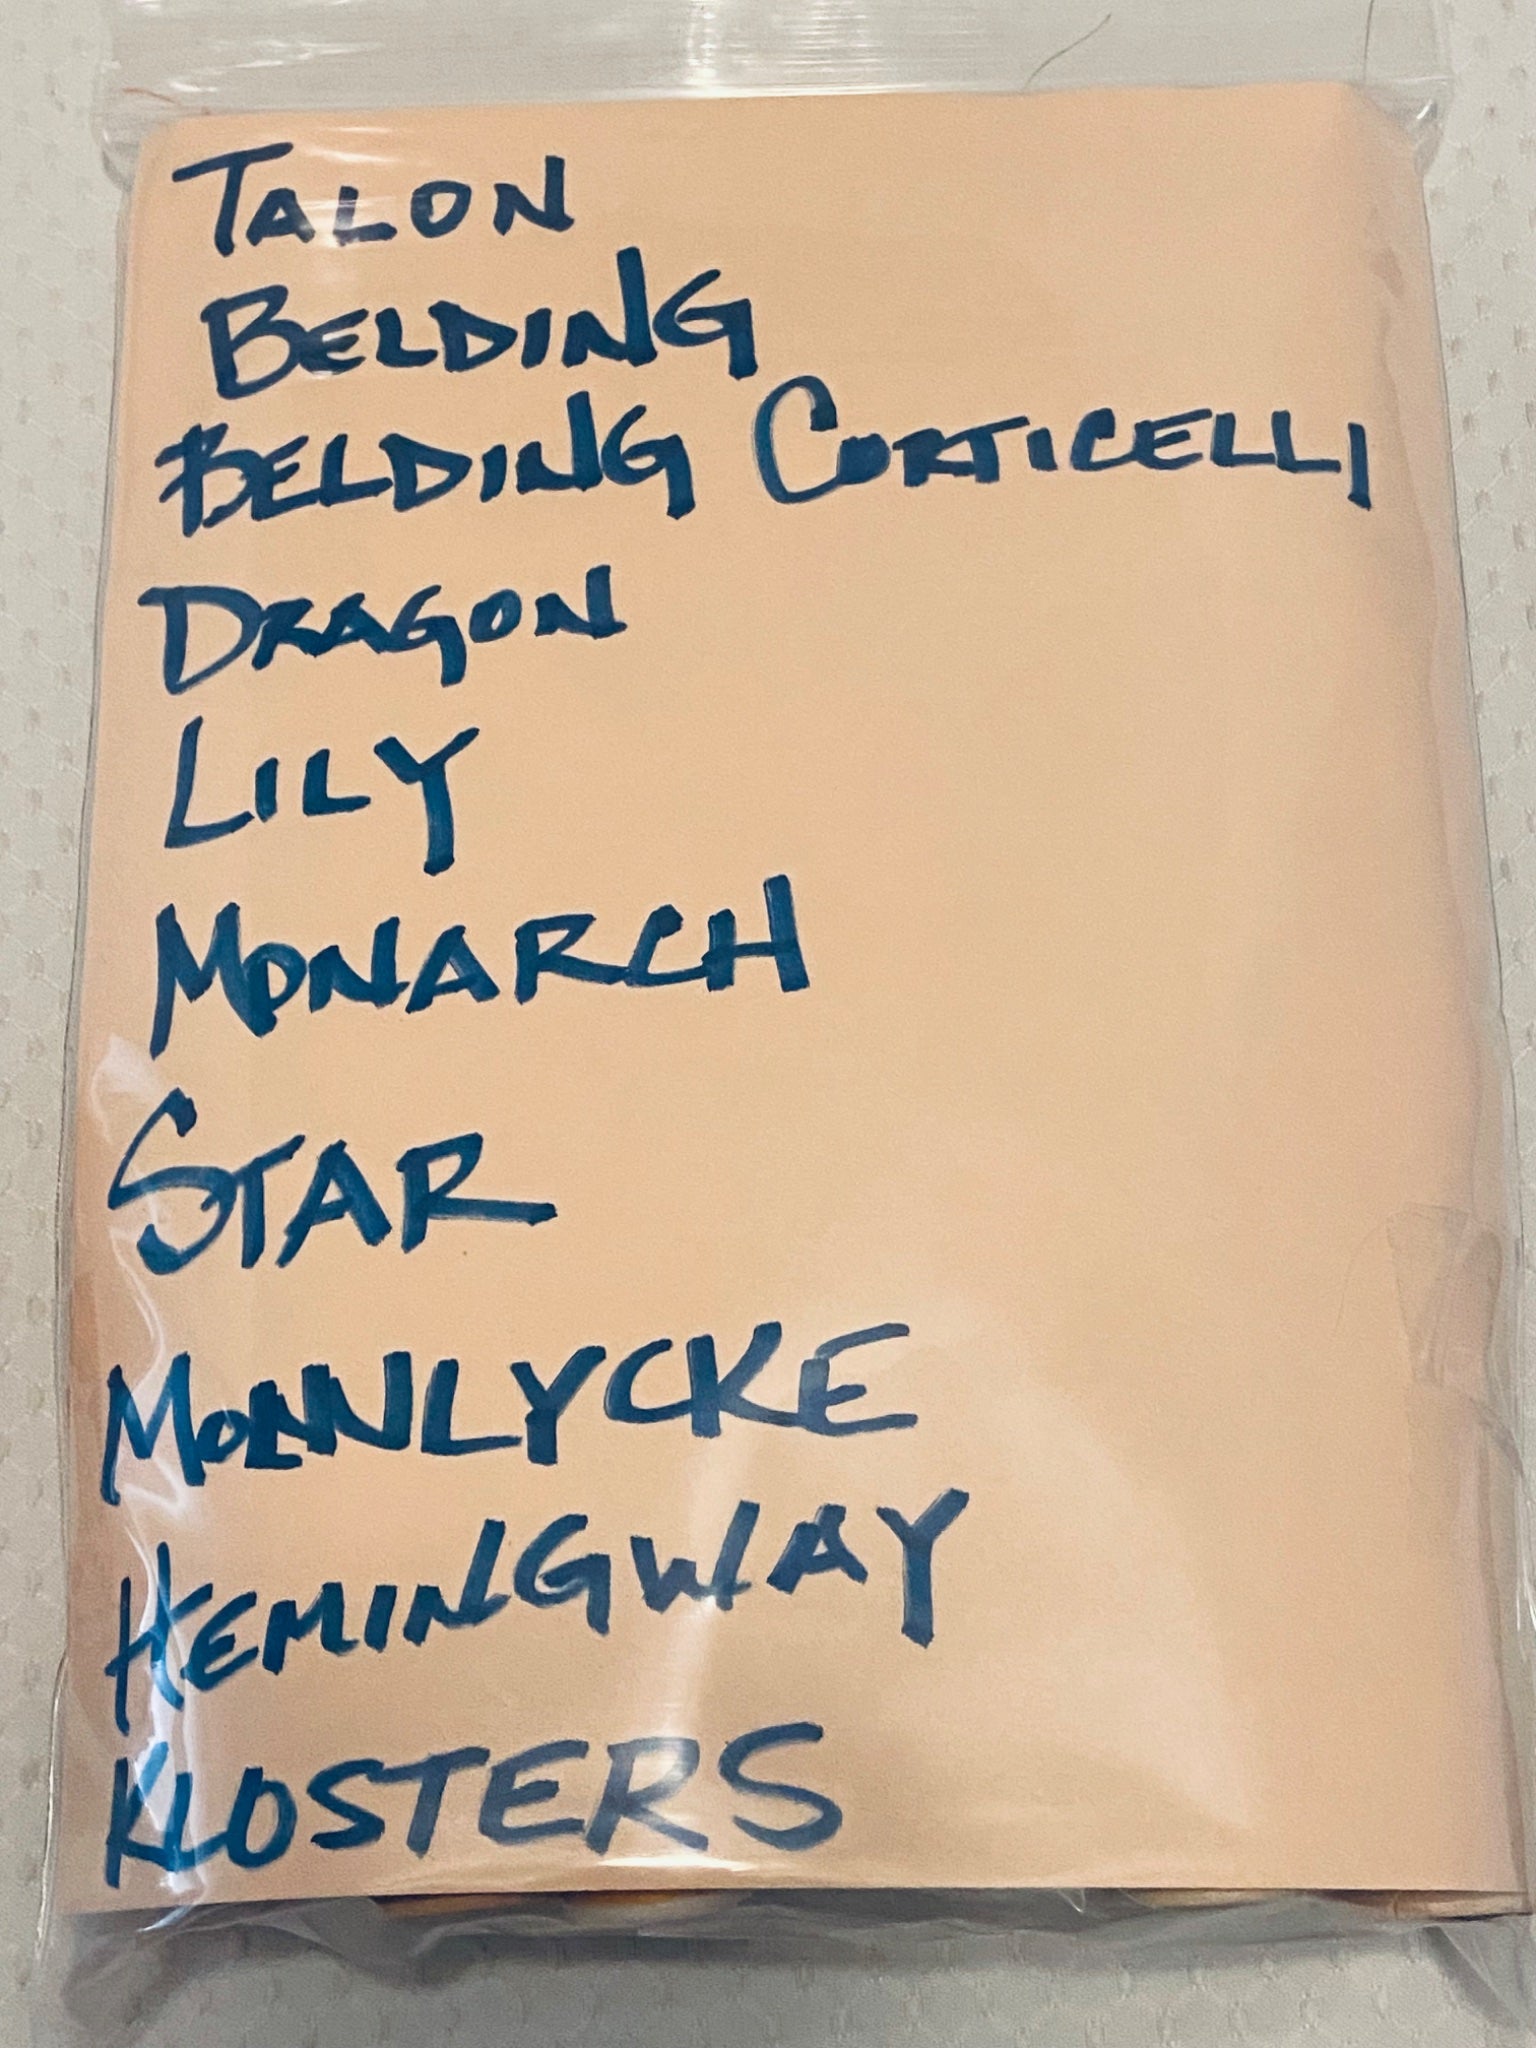 TALON
BELDING
BELDING CORTICELLI
DRAGON
LILY
MONARCH
STAR
MONNLYCKE
HEMINGWAY
KLOSTERS